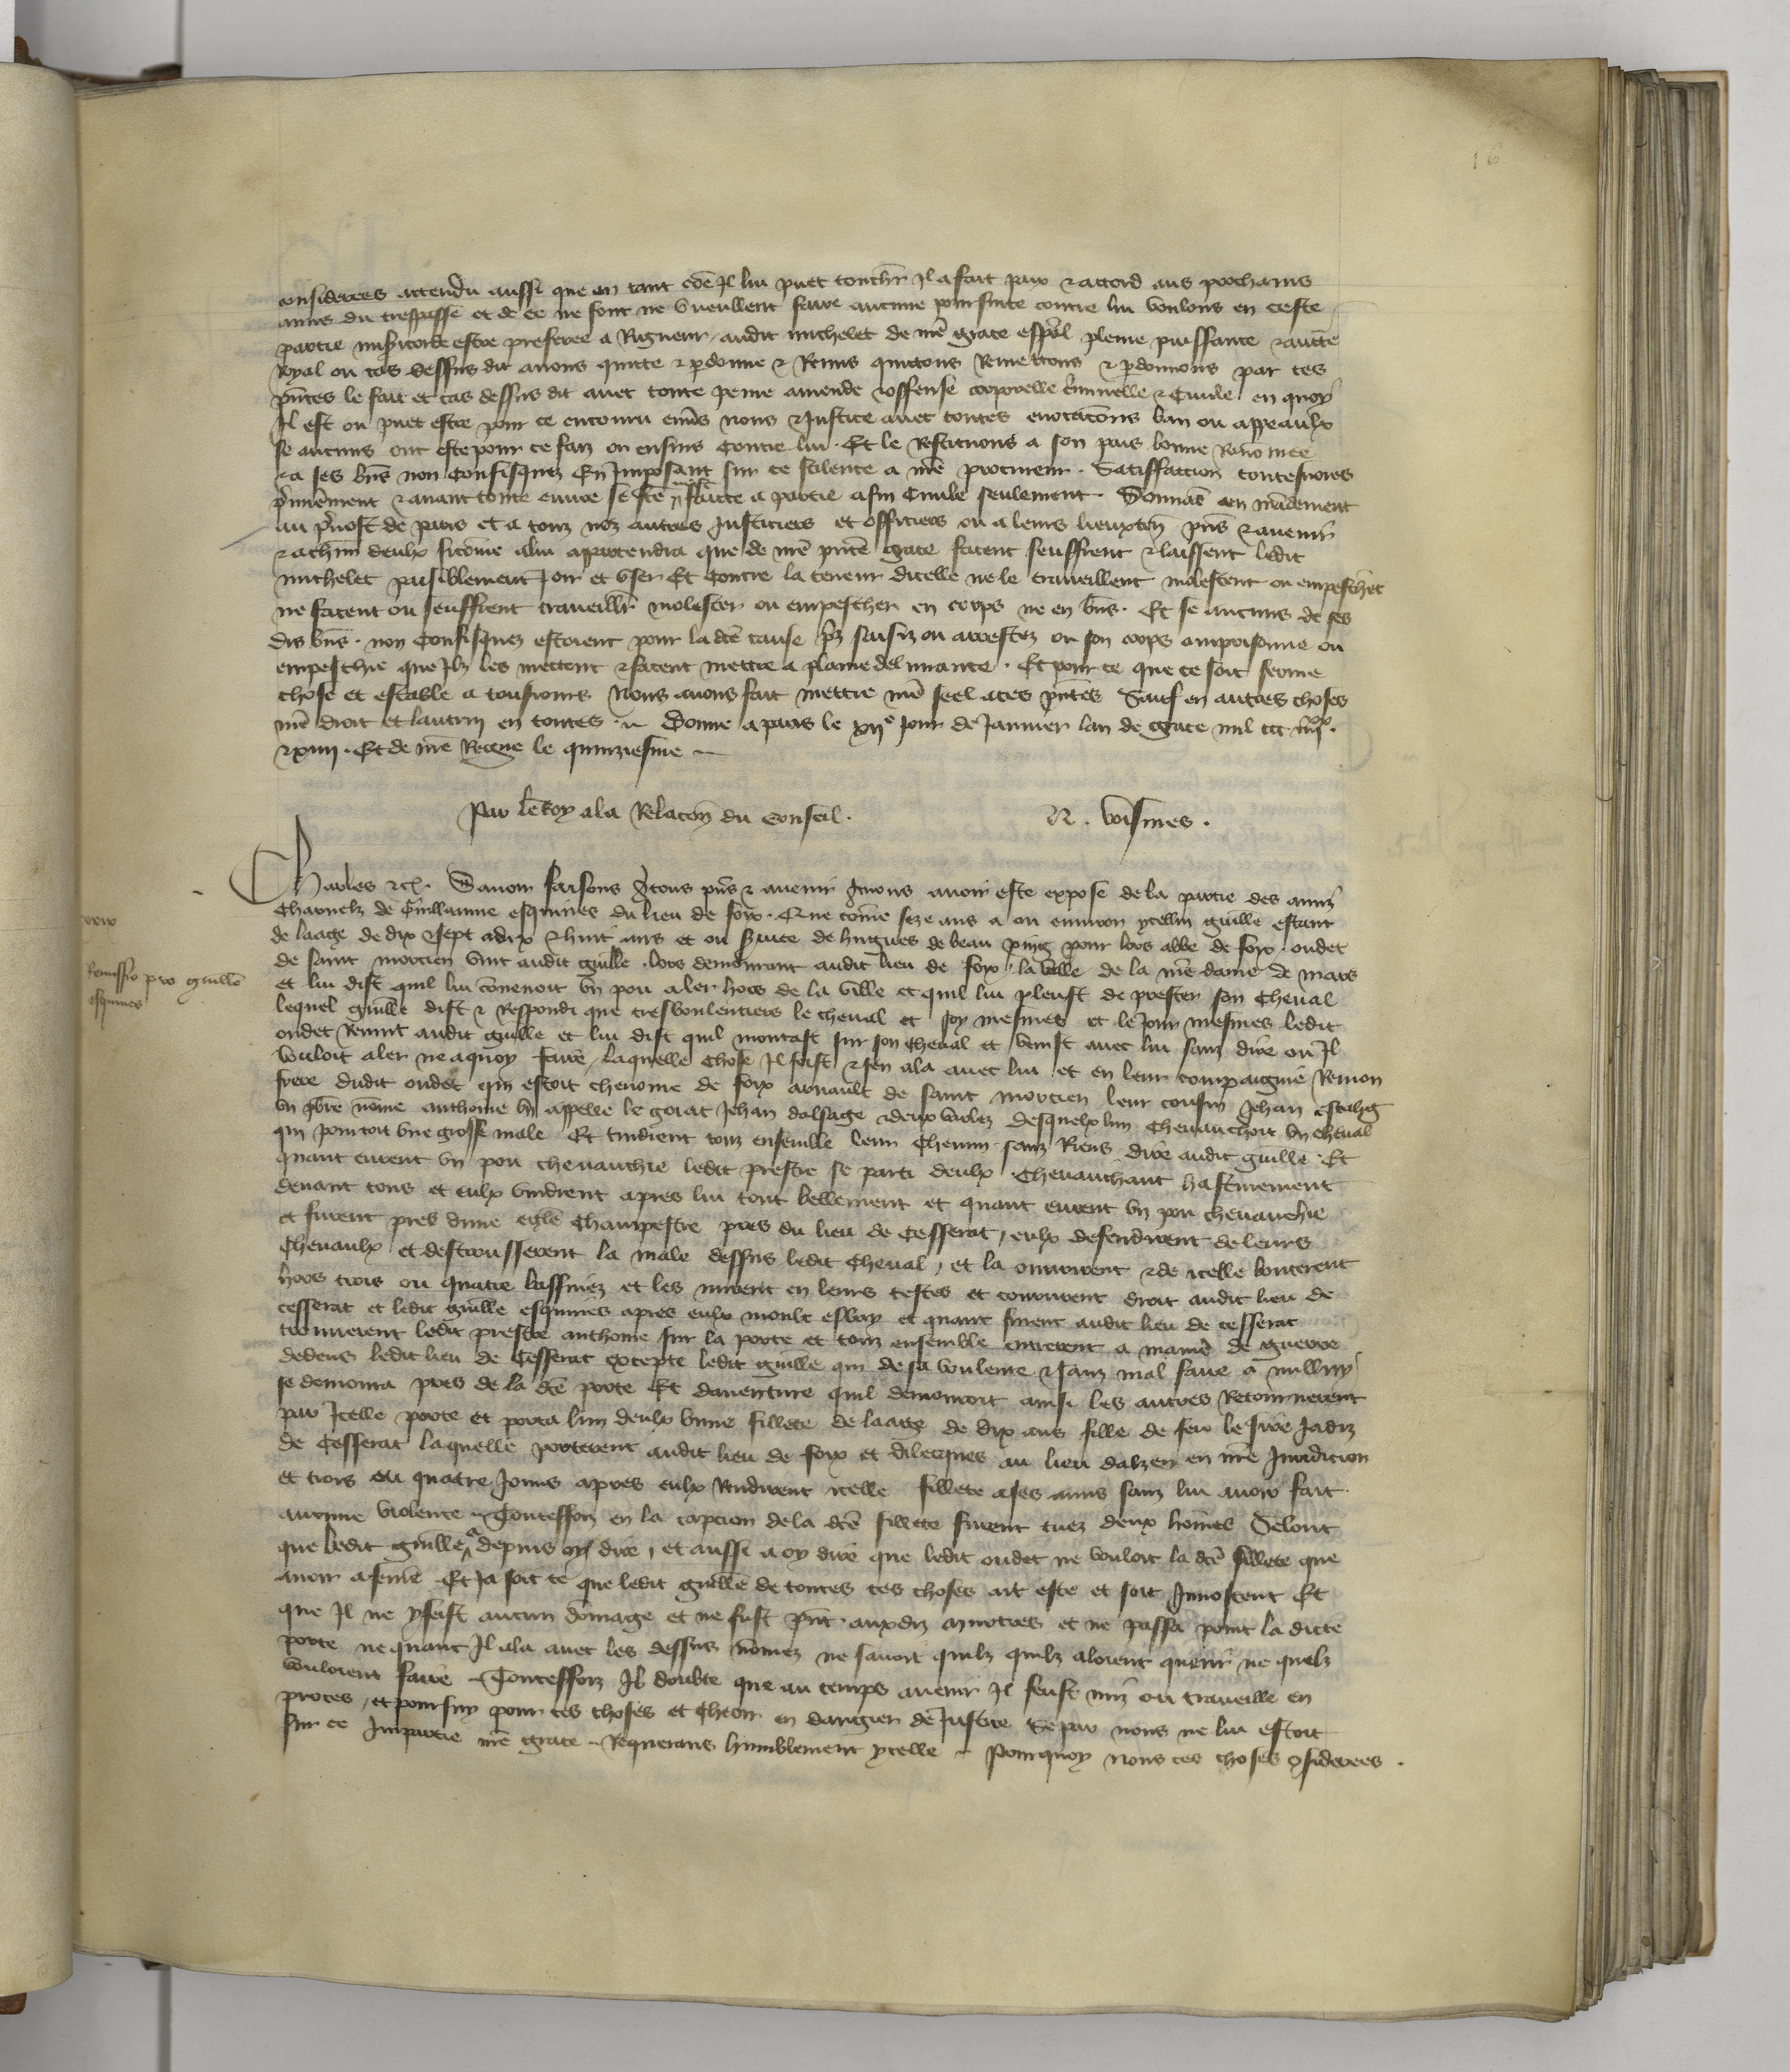 16
considerees attendu aussi que en tant cōe Il lui puet touchr Il a fait paix & accord aus prochains
amis du trespasse et de ce ne font ne vueullent faire aucune poursuite contre lui voulons en ceste
partie mīsicorde estre preferee a Rigueur, audit michelet de nrē grace espēal pleine puissance & auctē
Royal ou cas dessus dit auons quicte & pdonne & Remis quictons Remectons & pdonnons par ces
pn̄tes le fait et cas dessus dit auec toute peine amende & offense corporelle c̄minelle & Ciuile en quoy
Il est ou puet estre pour ce encouru enūs nous & Justice auec toutes euocacōns ban ou appeaulx
se aucuns ont este pour ce faiz ou ensuis contre lui. Et le Restituons a son pais bonne Renōmee
& a ses bn̄s non Confisquez En Imposant sur ce scilence a nrē procureur. Satisffaction touteuoies
p̄mieremēt & auant toute euure se fcē nest faicte a partie afin Ciuile seulement. Donnās en mādement
au p̄uost de paris et a touz noz autres Justiciers et officiers ou a leurs lieuxten̄ pn̄s & auenir
& a chūn deulx sicōme alui apartendra que de nrē pn̄te grace facent seuffrent & laissent ledit
michelet paisiblement Joir et vser Et Contre la teneur dicelle ne le trauueillent molestent ou empeschēt
ne facent ou seuffrent traueillr molester ou empescher en corps ne en bn̄s. Et se aucuns de ses
dis bn̄s. non Confisquez estoient pour la dcē cause pz saisiz ou arrestez ou son corps emprisonne ou
empeschie que Ilz les mectent & facent mettre a plaine deliurance. Et pour ce que ce soit ferme
chose et estable a tousiours Nous auons fait mettre nrē seel a ces pn̄tes Sauf en autres choses
nrē droit et lautruy en toutes. Donne a paris le xije Jour de Januier lan de grace mil ccc iiijxx.
& xiiij. Et de nrē Regne le quinziesme
Par le Roy ala Relacōn du conseil. N. voisines.
Charles &c. Sauoir faisons a tous pn̄s & auenir A nous auoir este expose de la partie des amis
Charnelz de Guillaume esquines du lieu de foix. Que cōme seze ans a ou enuiron ycellui guille estant
de laage de dix & sept a dix & huit ans et ou s̄uice de hugues de beau puig pour lors abbe de foix. oudet
de saint morcien vint audit guille. lors demourant audit lieu de foix
et lui dist quil lui conuenoit vn pou aler hors de la ville et quil lui pleust de prester son Cheual
lequel guille dist & Respondi que tresvoulentiers le cheual et soy mesmes et le Jour mesmes ledit
oudet Reuint audit guille et lui dist quil montast sur son Cheual et venist auec lui sanz dire ou Il
vouloit aler ne aquoy faire, laquelle chose Il feist & sen ala auec lui et en leur compaignie Remon
frere dudit oudet qui estoit chenoine de foix arnault de saint morcien leur cousin Jehan
vn pbrē nōme anthoine vn appelle le goiat Jehan dalsage & deux varlez desquelx lun Cheuauchoit vn cheual
qui portoit vne grosse male Et tindrent touz ensemble leur Chemin sanz Riens dire audit guille. Et
quant eurent vn pou cheuauchie ledit prestre se parti deulx Cheuauchant hastiuement
deuant tous et eulx vindrent apres lui tout bellement et quant eurent vn pou cheuauchie
et furent pres dune eglē Champestre pres du lieu de Cesserat, eulx descendirent de leurs
Cheuaulx et destrousserent la male dessus ledit Cheual, et la ouurirent & de icelle bouterent
hors trois ou quatre bassinez et les mirent en leurs testes et coururent droit audit lieu de
cesserat et ledit guille esquines apres eulx moult esbay et quant furent audit lieu de cesserat
trouuerent ledit prestre anthoine sur la porte et touz ensemble entrerent a manie de guerre
dedens ledit lieu de Cesserat excepte ledit guille qui de sa voulente & sanz mal faire a nulluy
se demoura pres de la dcē porte Et dauenture quil demouroit ainsi les autres Retournerent
par Icelle porte et porta lun deulx vnne fillete de laage de dix ans fille de feu le sire Jadiz
de Cesserat laquelle porterent audit lieu de foix et dilecques au lieu dalzen en nrē Juridicion
et trois ou quatre Jours apres eulx Rendirent icelle fillete a ses amis sanz lui auoir fait
aucune violence. Toutesfoiz en la capcion de la dcē fillete furent tuez deux homes Selont
que ledit guille a depuis oy dire, et aussi a oy dire que ledit oudet ne vouloit la dcē fillete que
auoir a feme Et Ja soit ce que ledit guille de toutes ces choses ait este et soit Innocent Et
que Il ne y feist aucun dōmage et ne fust pn̄t auxdiz murtres et ne passa point la dicte
porte ne quant Il ala auec les dessus nōmez ne sauoit quilz quilz aloient querir ne quelz
vouloient faire Toutesfoiz Il doubte que au temps auenir Il feust mis ou traueille en
proces, et poursuy pour ces choses et Cheoir en dangier de Justice Se par nous ne lui estoit
sur ce Impartie nrē grace Requerans humblement ycelle Pourquoy nous ces choses ɔsiderees.
Remissio pro guillō
esquines